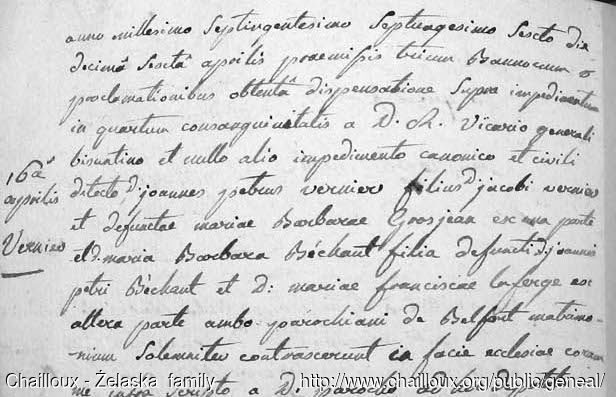 anno millesimo Septingentesimo Septuagesimo Sexto die
decimâ Sextâ aprilis praemissis trium Bannorum
proclamationibus obtentâ dispensatione Supra impedimentum
in quartum consanguinitatis a D. Vicario generali
bisuntino et nullo alio impedimento canonico et civili
16â
aprilis
Vernier
detecto, D. joannes petrus vernier filius D. jacobi vernier
et defunctae mariae Barbarae Grosjean ex una parte
et D. maria Barbara Béchaut filia defuncti D. joannis
petri Béchaut et D. mariae franciscae laferge ex
altera parte ambo parochiani de Belfort matrimo-
-nium Solemniter contraxerunt in facie ecclesiae coram
me infra Scripto a D. parocho ad hoc
Chailloux - Żelaska family
http://www.chailloux.org/public/geneal/